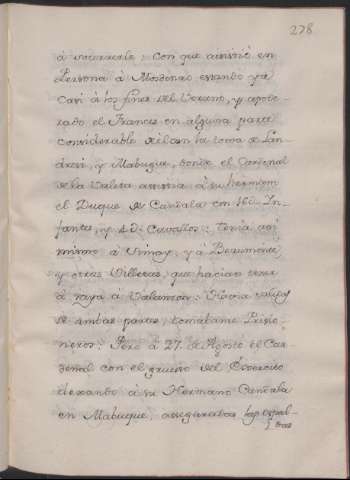 278
à socorrerle; con que asistió en
Persona à Mordinac estando ya
Casi à los fines del Verano, y apode-
rado el Frances en alguna parte
considerable con la toma de Lan-
dresi, y Mabugue, donde el Cardenal
de la Valeta asistia à su hermano
el Duque de Candala con 16U. In-
fantes, y 4U. Cavallos: tenia asi
mismo à Simay, y à Beaumonte
y otras Villetas, que hacian tener
à raya à Valansien: Havia salidas
de ambas partes; tomabanse Prisio-
neros: Pero à 27. de Agosto el Car-
denal con el grueso del Exercito
dexando à su Hermano Candala
en Mabugue, aseguradas las espal-
das